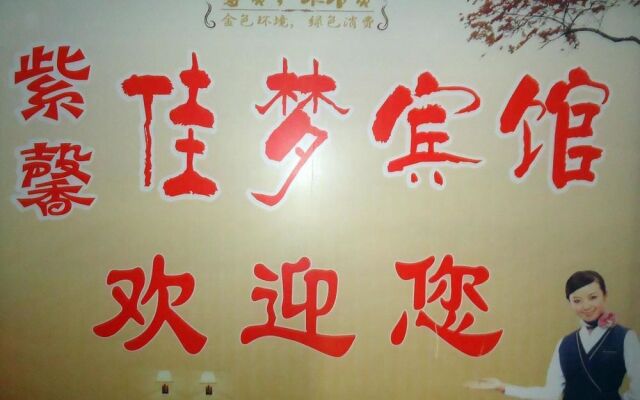 金色环境，绿色消费
紫馨
佳梦宾馆
欢迎您